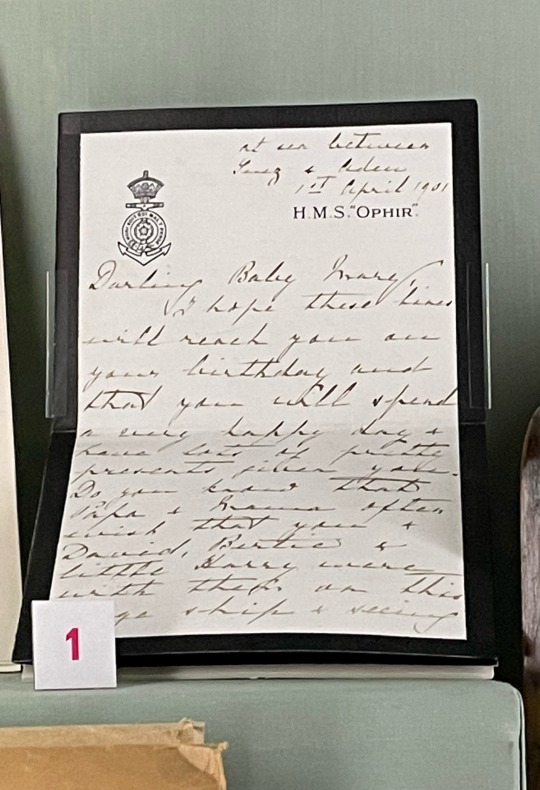 at sea between
Suez & Aden
1st April 1901
H.M.S. "OPHIR".
Darling Baby Mary,
I hope these lines
will reach you on
your birthday and
that you will spend
a very happy day &
have lots of pretty
presents given you.
Do you know that
Papa & Mama often
wish that you &
David, Bertie &
little Harry were
with them on this
ship & seeing
1